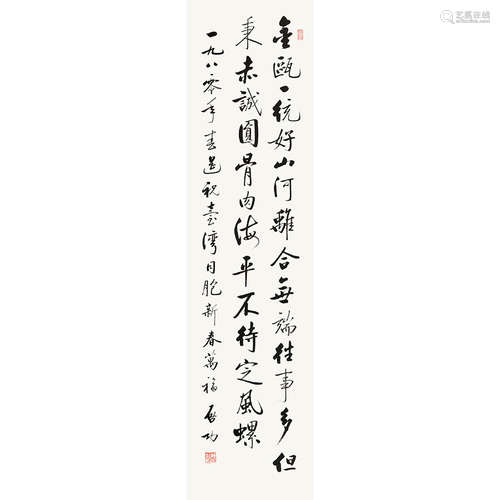 金甌一統好山河離合無端往事多但
秉赤誠圓骨肉海平不待定風螺
一九八零年春遥祝臺灣同胞新春萬福 啟功